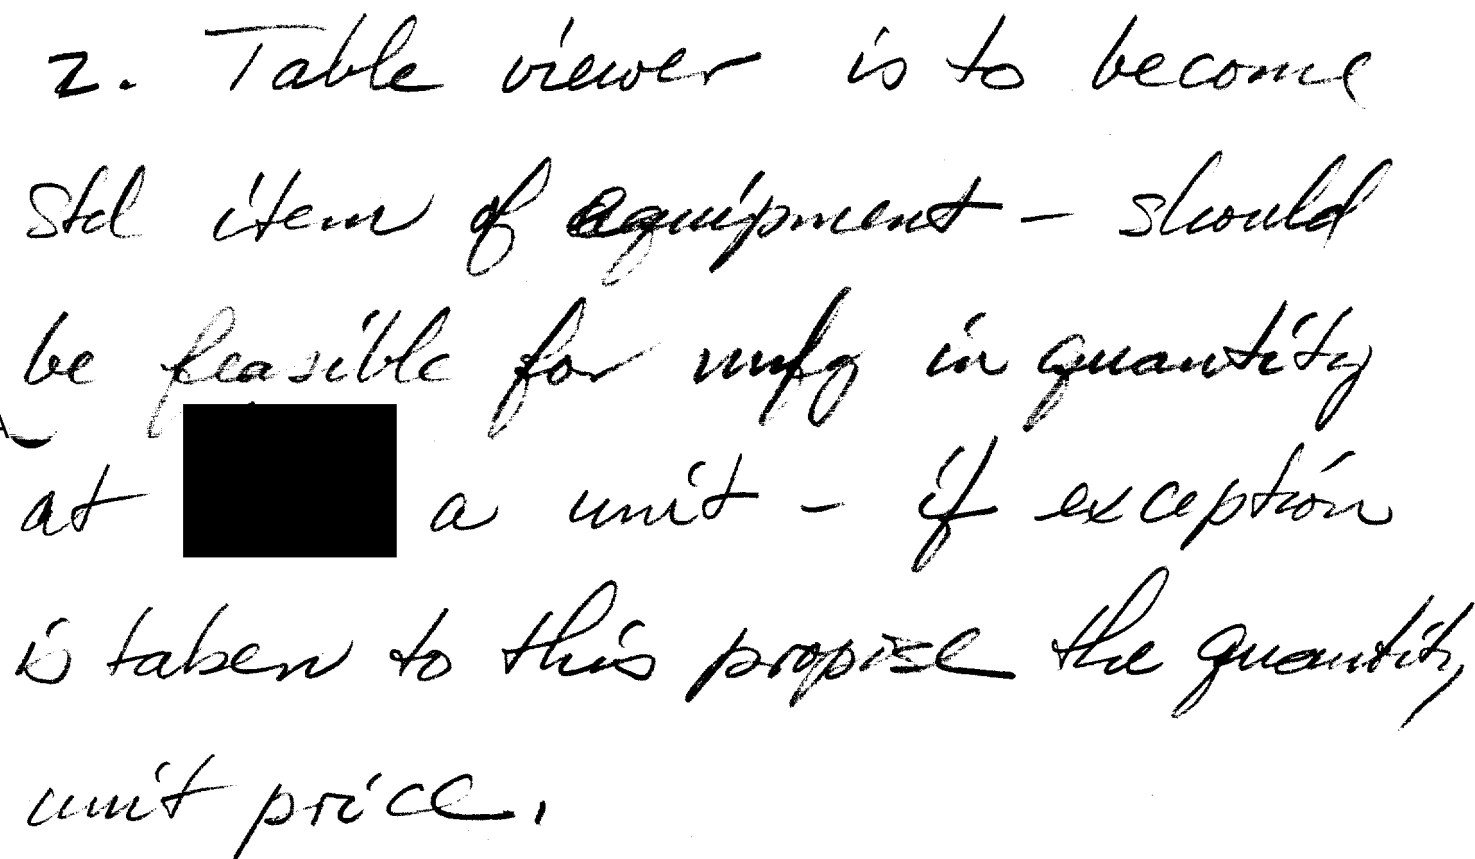 2. Table viewer is to become
Std item of equipment - should
be feasible for mfg in quantity
at a unit - if exception
is taken to this propose the quantity
unit price.